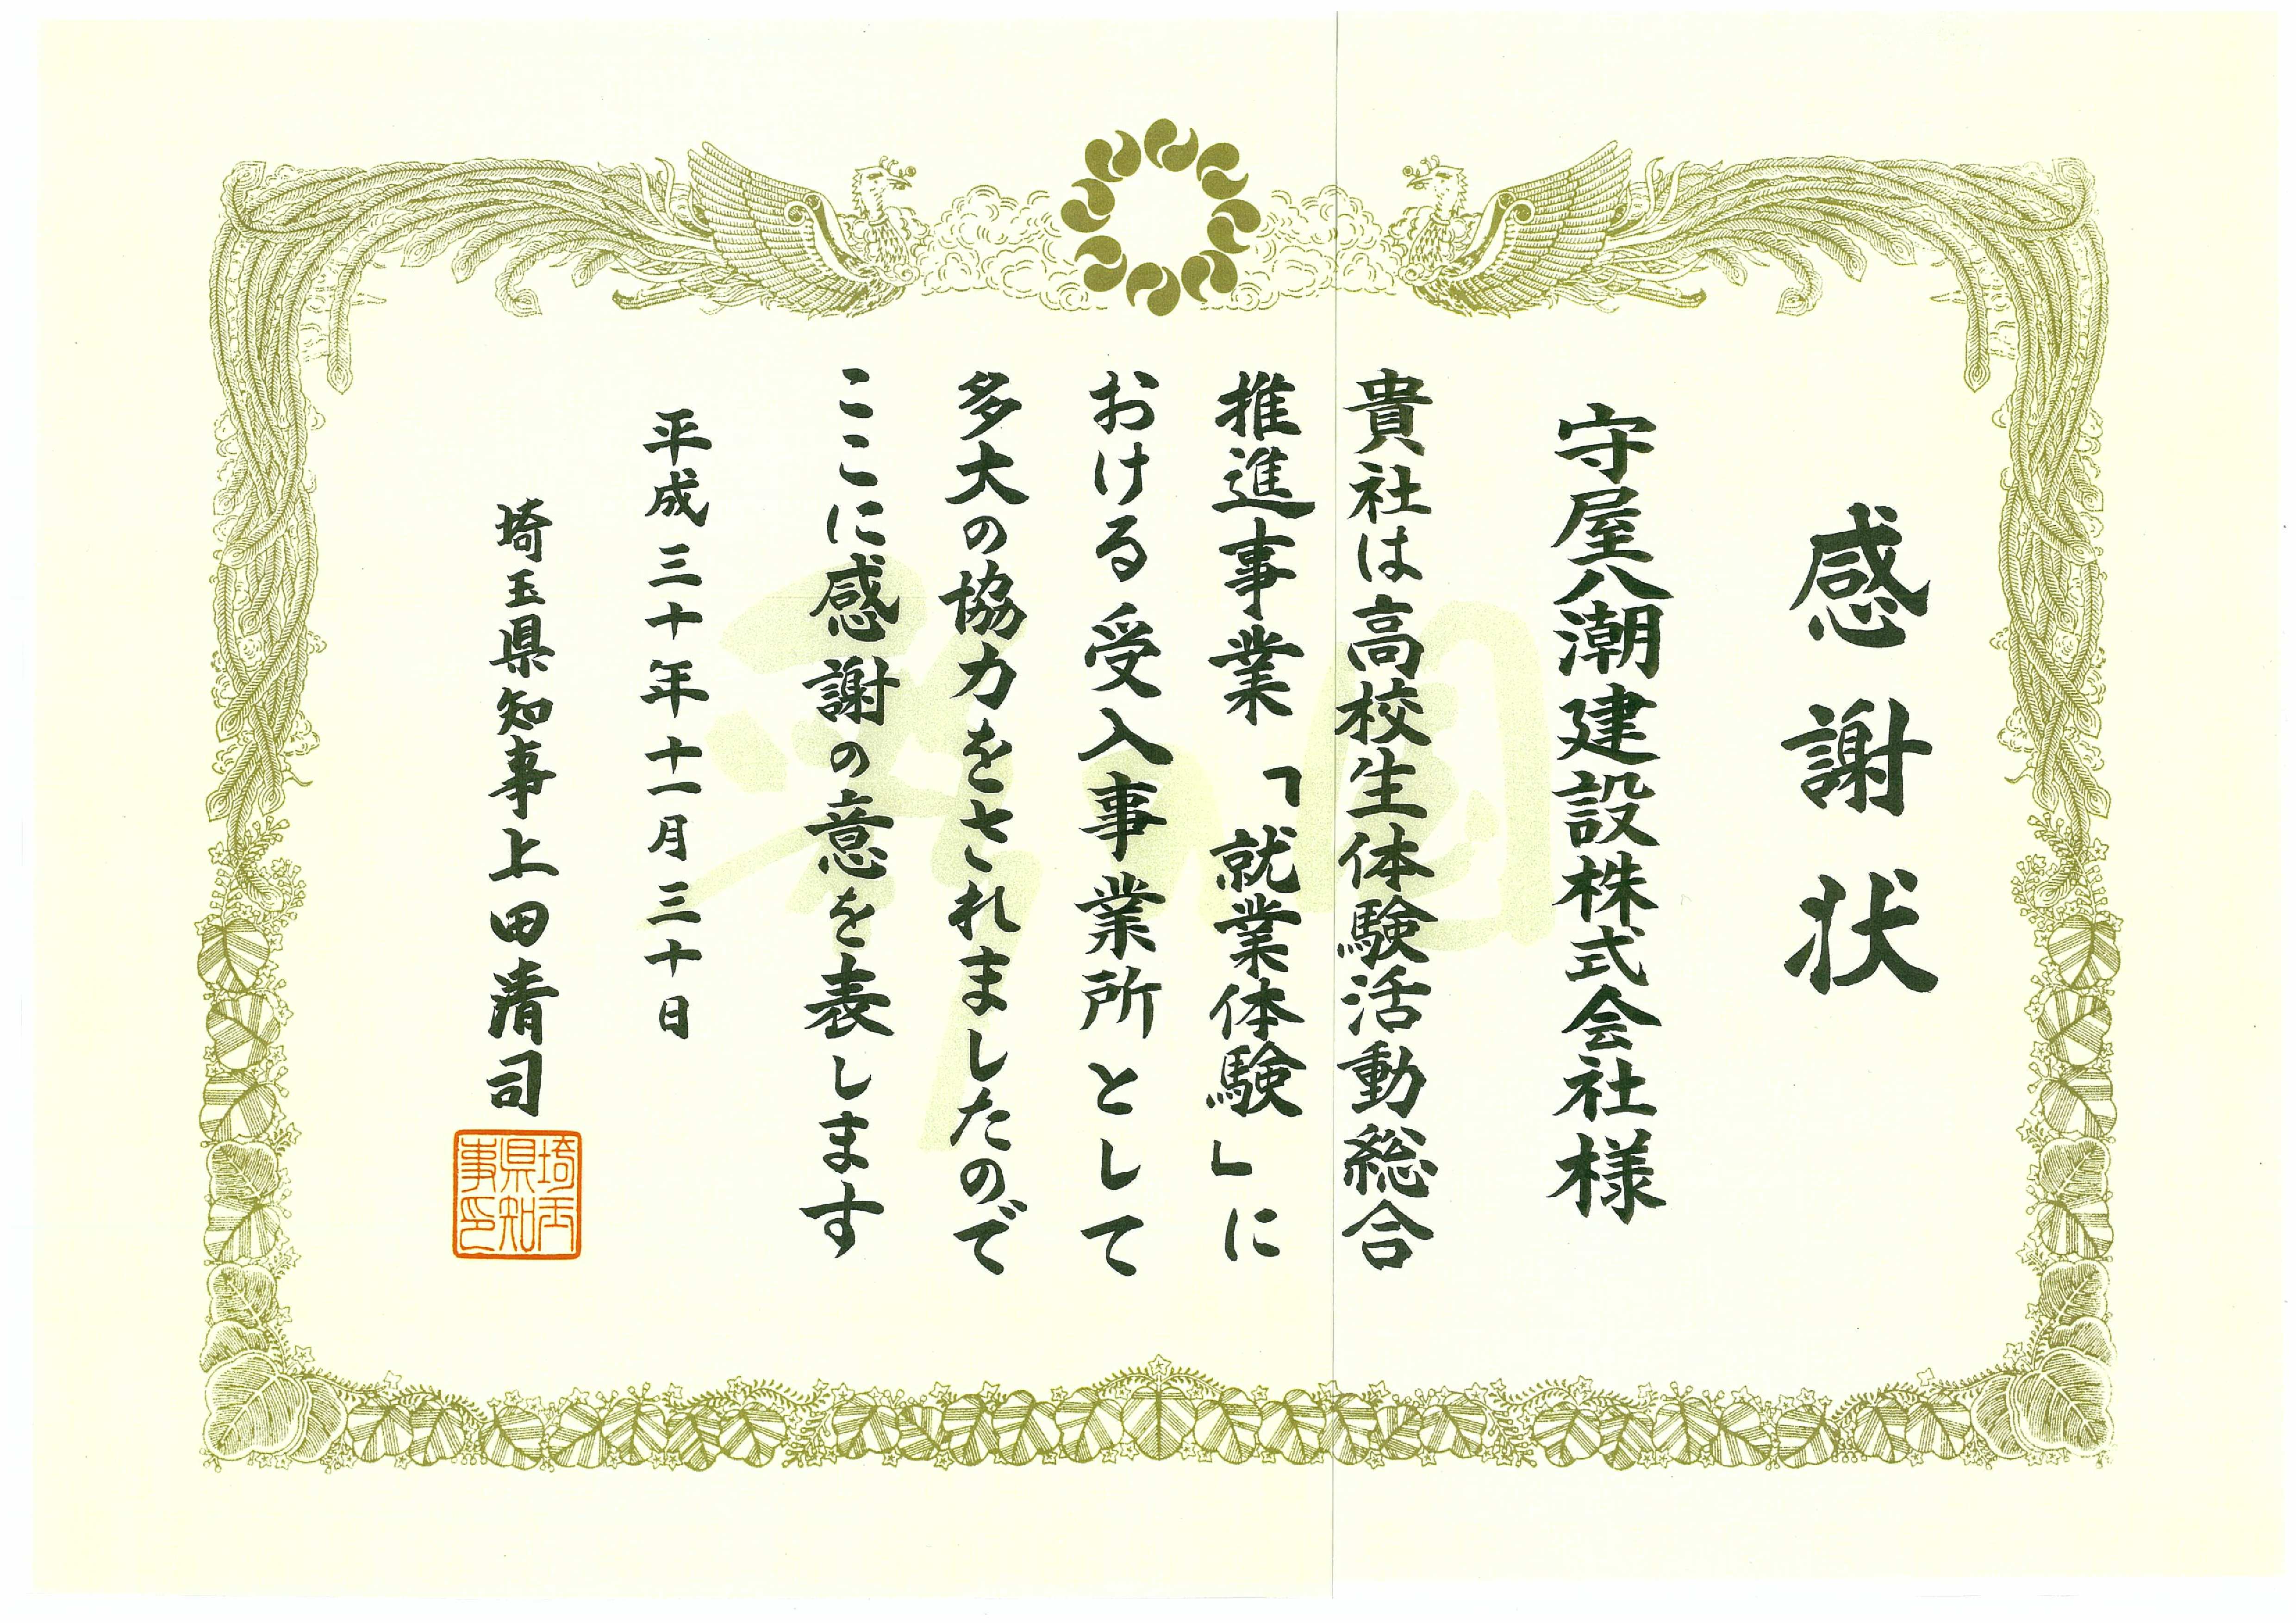 感謝状
守屋八潮建設株式会社様
貴社は高校生体験活動総合
推進事業「就業体験」に
おける受入事業所として
多大の協力をされましたので
ここに感謝の意を表します
平成三十年十一月三十日
埼玉県知事上田清司
埼玉県知事印
彩の国